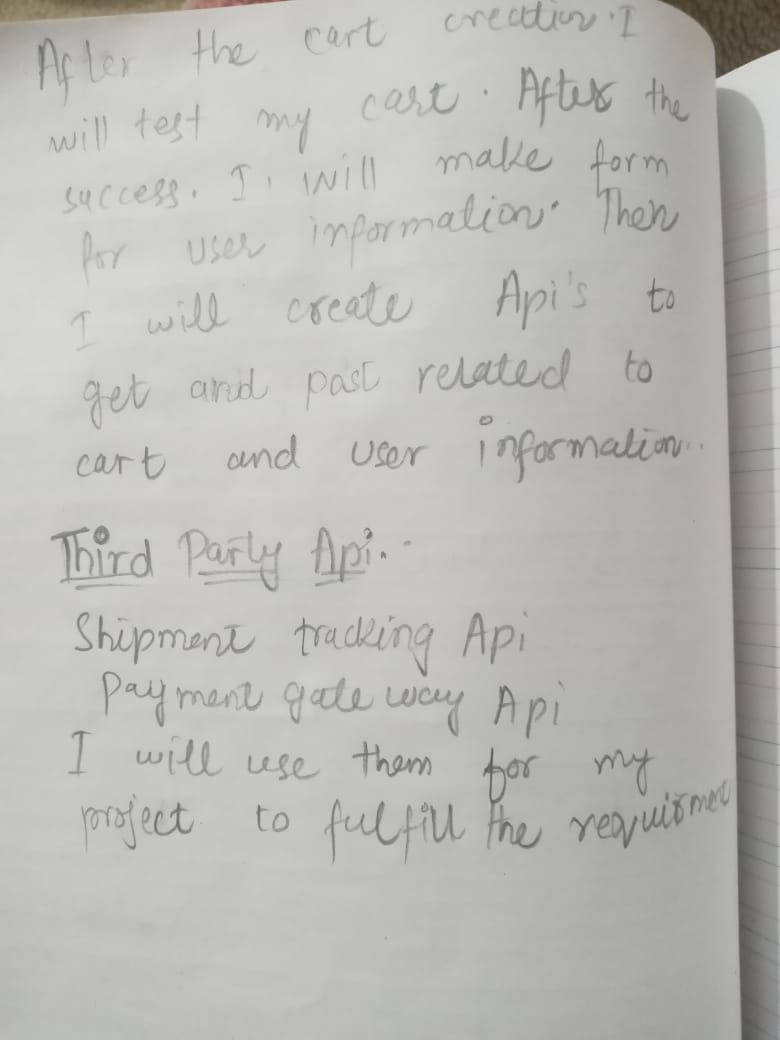 After the cart creation. I
will test my cart. After the
success. I. will make form
for user information. Then
I will create Api's to
get and past related to
cart and user information..
Third Party Api..
Shipment tracking Api
Payment gate way Api
I will use them for my
project to fulfill the requirment